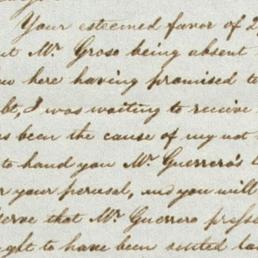 Your esteemed favor of 2
Mr Groso being absent
here having promised to
I was waiting to receive
been the cause of my not
to hand you Mr Guerrero's
your perusal, and you will
serve that Mr Guerrero
ght to have been settled